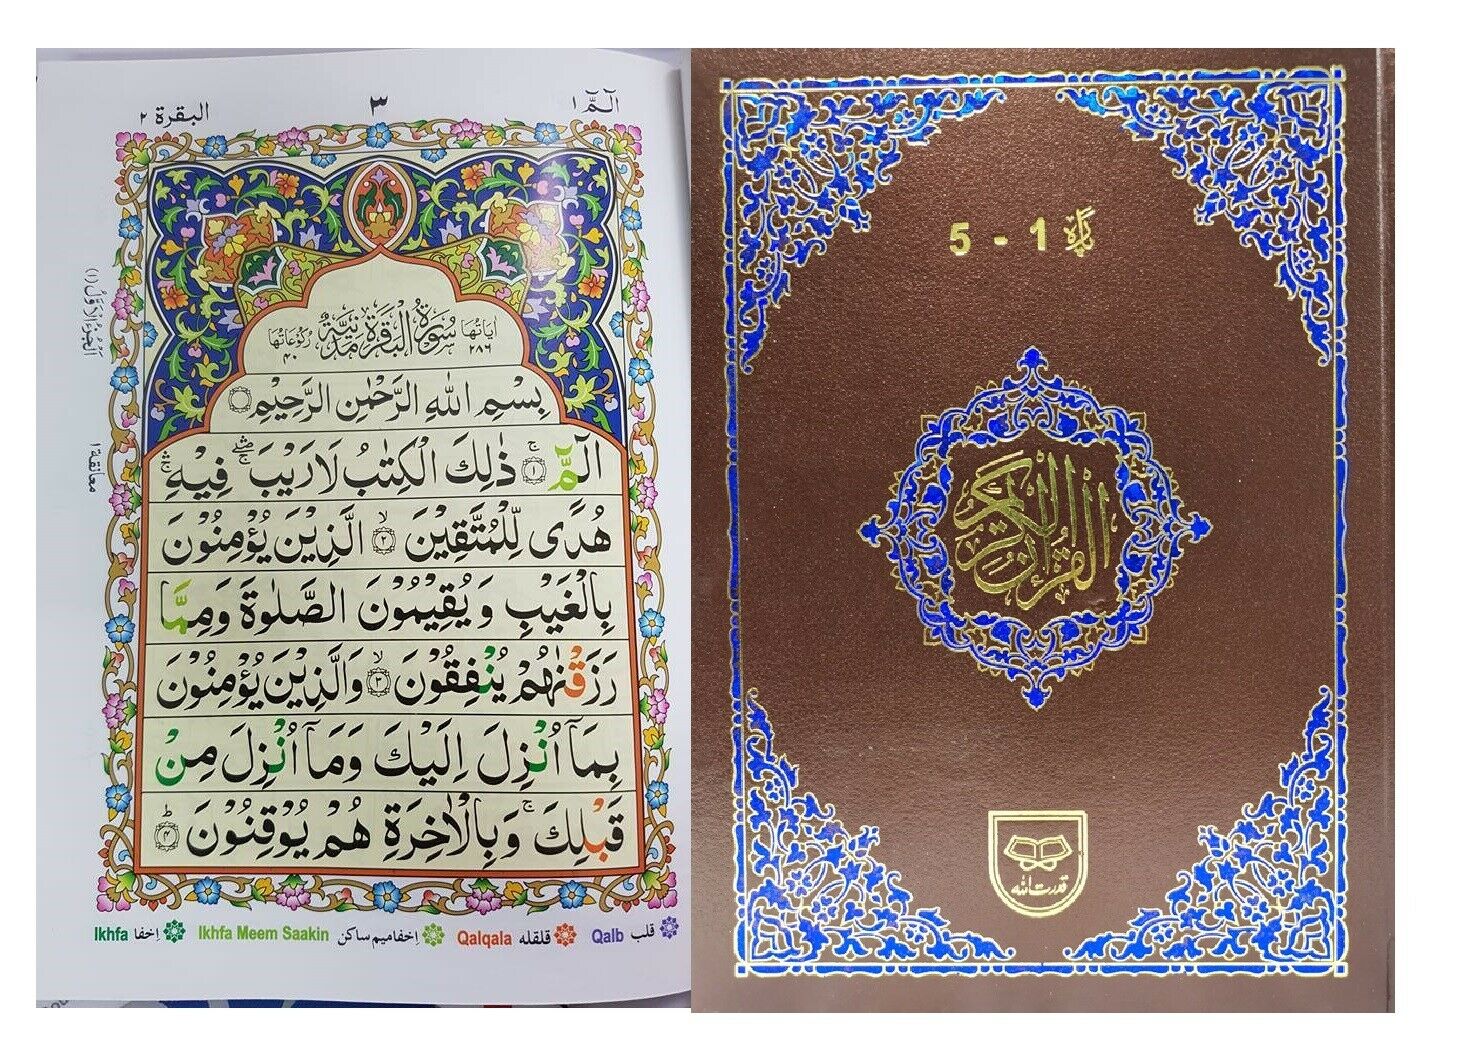 الٓمّٓ ١
٣
البقرة ٢
اٰيَاتُهَا ٢٨٦
سُوْرَةُ الْبَقَرَةِ مَدَنِيَّةٌ
رُكُوْعَاتُهَا ٤٠
بِسْمِ اللّٰهِ الرَّحْمٰنِ الرَّحِيْمِ
الٓمّٓ ۚ ﴿١﴾ ذٰلِكَ الْكِتٰبُ لَا رَيْبَ ۛ ۖ فِيْهِ ۛ ۚ
هُدًى لِّلْمُتَّقِيْنَ ۙ ﴿٢﴾ الَّذِيْنَ يُؤْمِنُوْنَ
بِالْغَيْبِ وَيُقِيْمُوْنَ الصَّلٰوةَ وَمِمَّا
رَزَقْنٰهُمْ يُنْفِقُوْنَ ۙ ﴿٣﴾ وَالَّذِيْنَ يُؤْمِنُوْنَ
بِمَآ اُنْزِلَ اِلَيْكَ وَمَآ اُنْزِلَ مِنْ
قَبْلِكَ ۚ وَبِالْاٰخِرَةِ هُمْ يُوْقِنُوْنَ ؕ ﴿٤﴾
اَلْجُزْءُ الْاَوَّلُ (١)
معانقة ١
قلب Qalb
قلقله Qalqala
اِخفا ميم ساكن Ikhfa Meem Saakin
اِخفا Ikhfa
پارہ 1 - 5
القرآن الكريم
قدرت اللہ